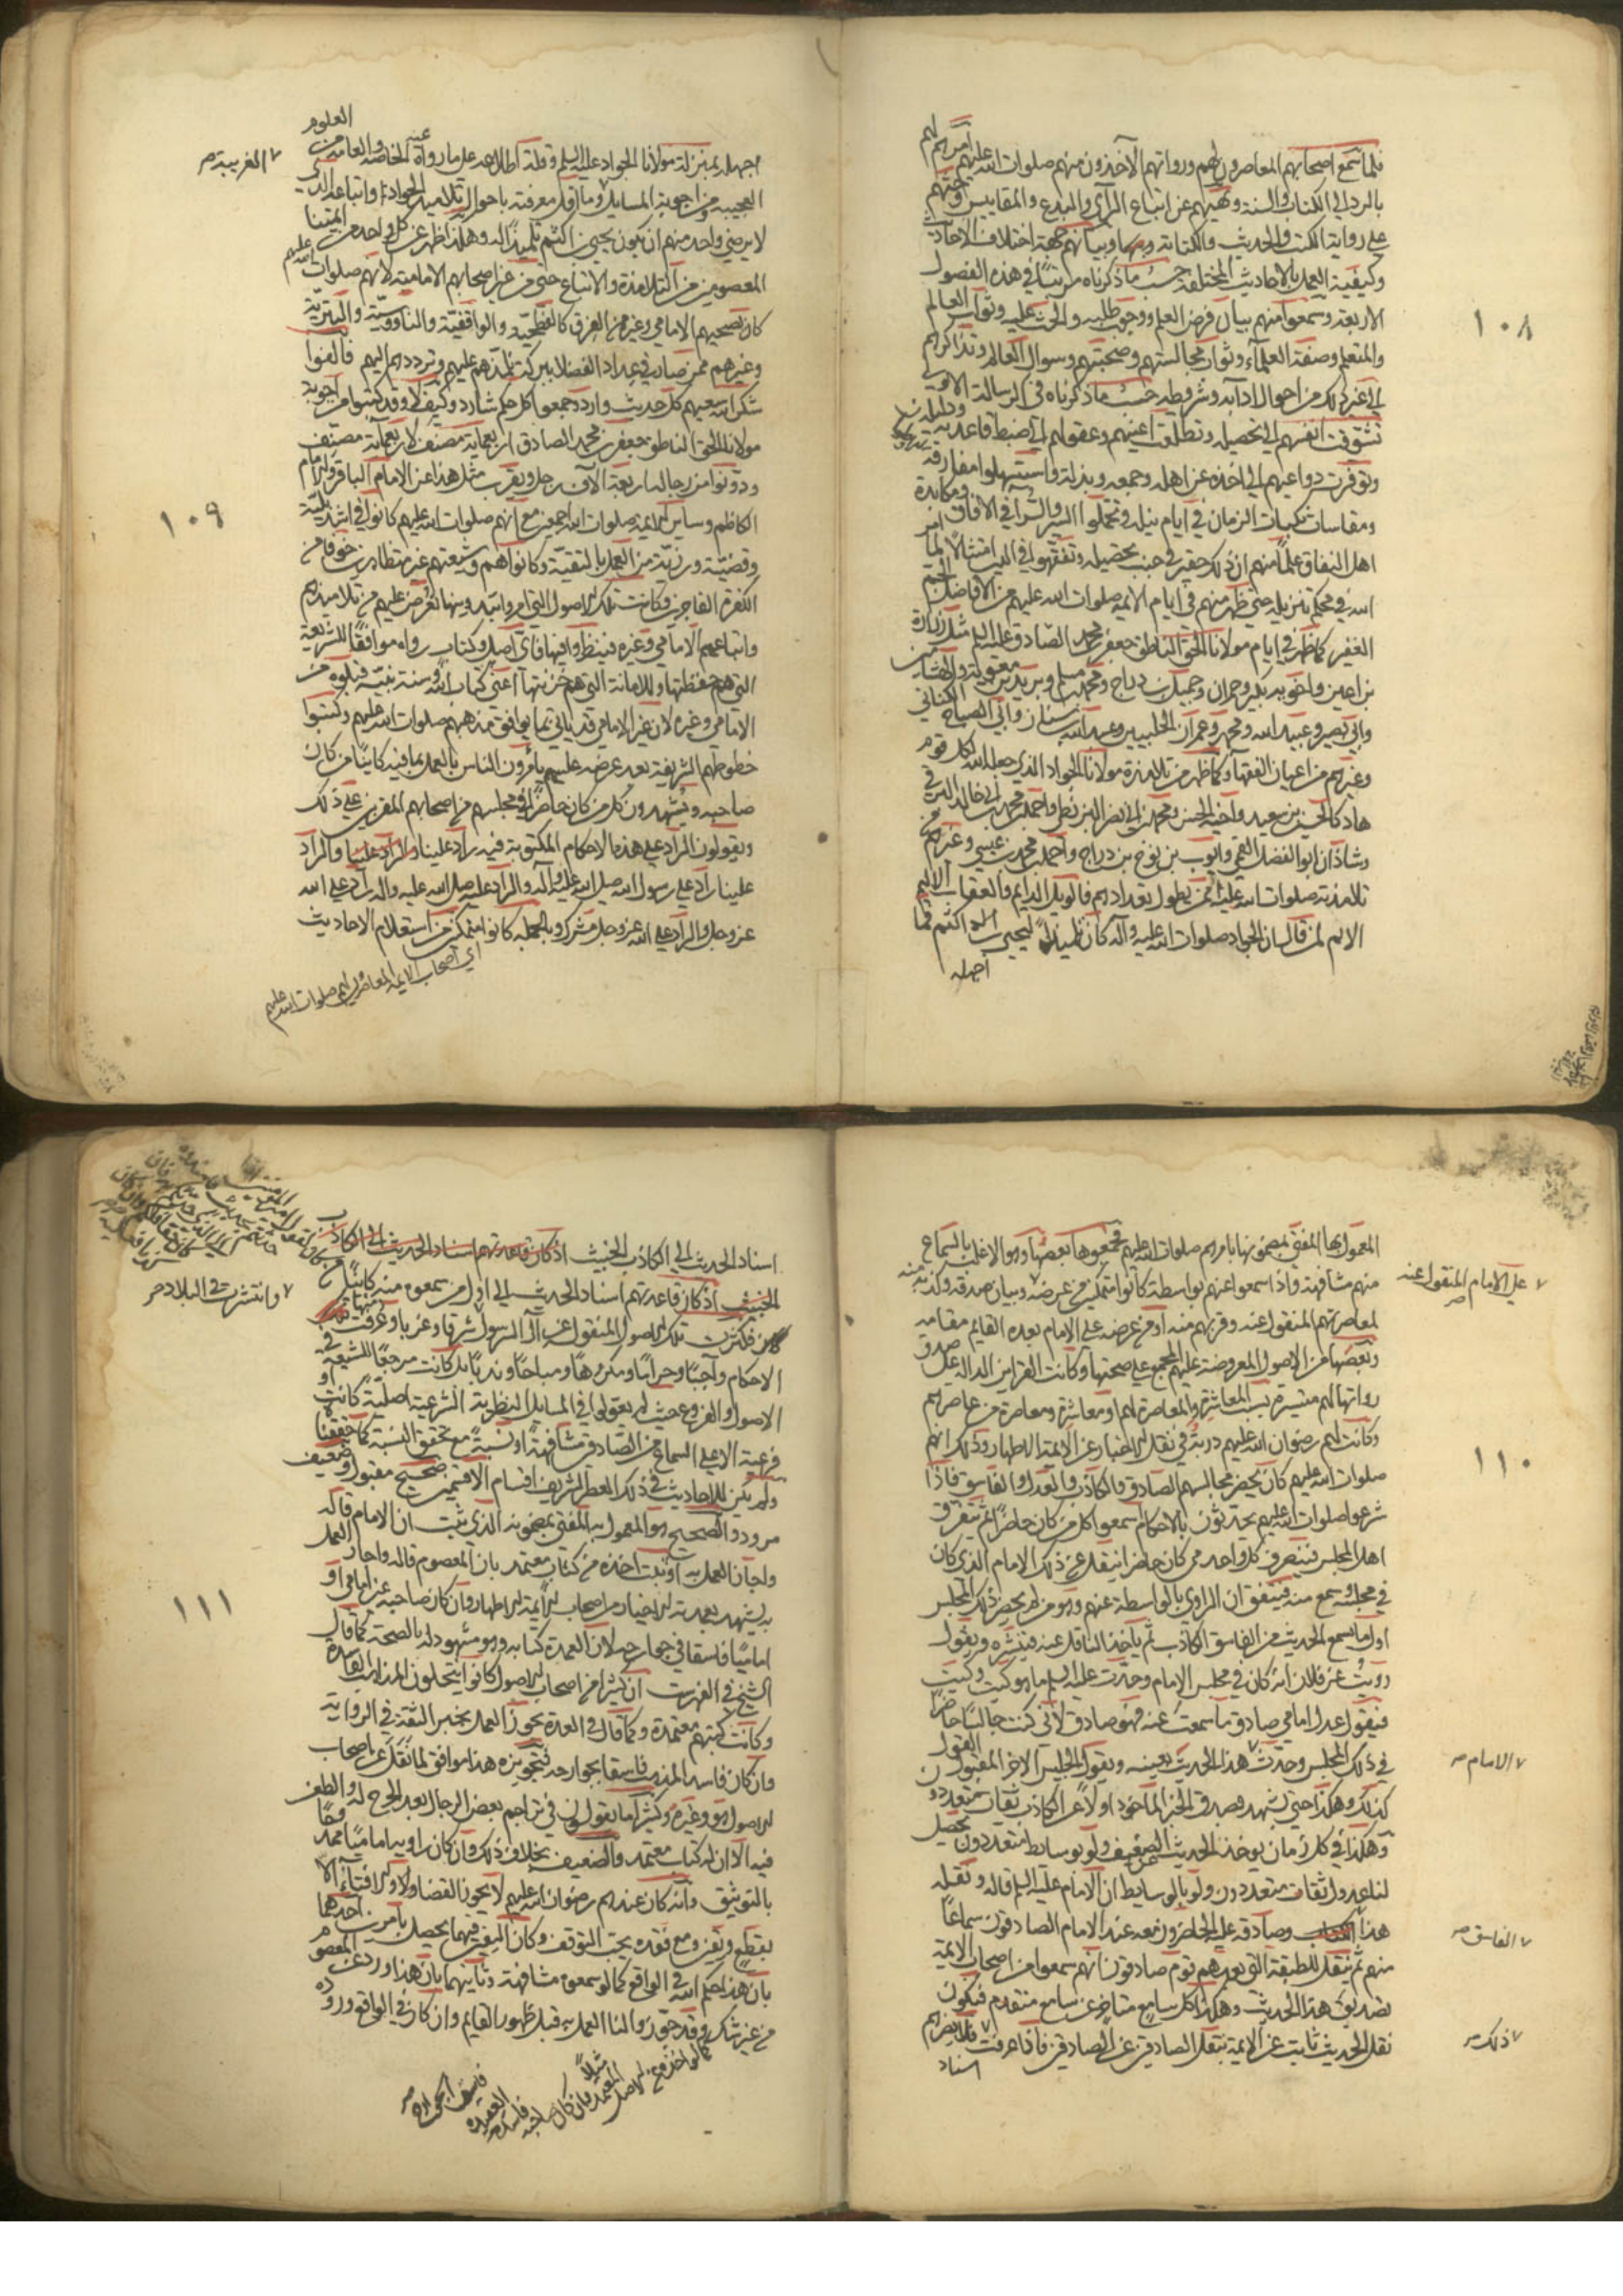 فلما سمع اصحابهم المعاصرون لهم ورواتهم الآخذون منهم صلوات الله عليهم امرهم لهم
بالرد الى الكتاب والسنة ونهيهم عن اتباع الرأي والبدع والمقاييس وحثهم
على رواية الكتب والحديث والكتابة وبيانهم جهة اختلاف الاحاديث
وكيفية العمل بالاحاديث المختلفة حسب ما ذكرناه مرتبا في هذه الفصول
الاربعة وسمعوا منهم بيان فرض العلم ووجوب طلبه والحث عليه وثواب العالم
والمتعلم وصفة العلماء وثواب مجالستهم وصحبتهم وسوال العالم وتذاكرهم
الى غير ذلك من احوال آدابه وشروطه حسب ما ذكرناه في الرسالة الاولى
تشوقت انفسهم الى تحصيله وتطلعت اعينهم وعقولهم الى ضبط قاعدته
وتوفرت دواعيهم الى اخذه عن اهله وجمعه وبذله واستسهلوا مفارقة
ومقاسات نكبات الزمان في ايام نيله وتحملوا السير والسرا في الافاق ومكابدة
اهل النفاق علما منهم ان ذلك حقير في جنب تحصيله وتفقهوا في الدين امتثالا لما امر
الله في محكم تنزيله حتى ظهر منهم في ايام الائمة صلوات الله عليهم من الافاضل الجم
الغفير كما ظهر في ايام مولانا الحق الناطق جعفر بن محمد الصادق عليه السلم مثل زرارة
بن اعين واخويه بكير وحمران وجميل بن دراج ومحمد بن مسلم وبريد بن معوية والهشامين
وابي بصير وعبيد الله ومحمد وعمران الحلبيين وعبد الله بن سنان وابي الصباح الكناني
وغيرهم من اعيان الفقهاء وكما ظهر من تلامذة مولانا الجواد الذي جعله الله لكل قوم
هاد كالحسين بن سعيد واخيه الحسن واحمد بن محمد بن ابي نصر البزنطي واحمد بن محمد بن خالد البرقي
وشاذان ابو الفضل القمي وايوب بن نوح بن دراج واحمد بن محمد بن عيسى وغيرهم من
تلامذته صلوات الله عليه ممن يطول تعدادهم فالويل الدايم والعقاب الاليم
الايم لمن قال بان الجواد صلوات الله عليه وآله كان تلميذا ليحيى بن اكثم فما
اجهله
١٠٨
العلوم
اجهله بمنزلة مولانا الجواد عليه السلم وقلة اطلاعه على ما رواه عنه الخاصة والعامة من
٧ الغريبة صح
العجيبة من اجوبة المسايل وما اقل معرفته باحوال تلاميذ الجواد واتباعه الذي
لا يرضى واحد منهم ان يكون يحيى بن اكثم تلميذا له وهكذا ظهر عن كل واحد من ائمتنا
المعصومين من التلامذة والاتباع حتى من غير اصحابهم الامامية لانهم صلوات الله عليهم
كان يصحبهم الامامي وغيره من الفرق كالفطحية والواقفية والناووسية والبترية
وغيرهم ممن صار في عداد الفضلاء ببركة تلمذهم عليهم وترددهم اليهم فالفوا
شكر الله سعيهم كل حديث وارد وجمعوا كل حكم شارد وكيف لا وقد كتبوا من اجوبة
مولانا الحق الناطق جعفر بن محمد الصادق اربعمائة مصنف لاربعمائة مصنف
ودونوا من رجاله اربعة آلاف رجل ويقرب مثل هذا عن الامام الباقر والامام
الكاظم وساير الائمة صلوات الله اجمعين مع انهم صلوات الله عليهم كانوا في اشد بلية
وقضية ورزية من العمل بالتقية وكانوا هم وشيعتهم غير متظاهرين خوفا من
الكفرة الفاجرين فكانت تلك الاصول التي امروا بتدوينها تعرض عليهم من تلاميذهم
واتباعهم الامامي وغيره فينظروا فيها فاي اصل وكتاب رواه موافقا للشريعة
التي هم حفظتها وللامانة التي هم خزنتها اعني كتاب الله وسنة نبيه قبلوه من
الامامي وغيره لان غير الامامي قد ياتي بما يوافق مذهبهم صلوات الله عليهم وكتبوا
خطوطهم الشريفة بعد عرضه عليهم يأمرون الناس بالعمل بما فيه كاينا من كان
صاحبه ويشهدون كل من كان حاضرا في مجلسهم من اصحابهم المقربين على ذلك
ويقولون الراد على هذه الاحكام المكتوبة فيه راد علينا والراد علينا والراد
علينا راد على رسول الله صلى الله عليه وآله والراد عليه صلى الله عليه وآله راد على الله
عز وجل والراد على الله عز وجل مشرك وبالجملة كانوا متمكنين من استعلام الاحاديث
اي اصحاب الايمة المعاصرين لهم صلوات الله عليهم
١٠٩
المعمول بها المفتي بمضمونها بامرهم صلوات الله عليهم فجمعوها بعضها وهو الاغلب بالسماع
منهم مشافهة واذا سمعوا عنهم بواسطة كانوا متمكنين من عرضه وبيان صدقه وكذبه منه
٧ على الامام المنقول عنه صح
لمعاصرتهم المنقول عنه وقربهم منه او من عرضه على الامام بعده القايم مقامه
وبعضها من الاصول المعروضة عليهم المجمع على صحتها وكانت القراين الدالة على صدق
رواتها لهم متيسرة بسبب المعاشرة والمعاصرة لهم او معاشرة ومعاصرة من عاصرهم
وكانت لهم رضوان الله عليهم دربة في نقل الاخبار عن الائمة الاطهار وذلك انهم
صلوات الله عليهم كان يحضر مجالسهم الصادق والكاذب والعدل والفاسق فاذا
شرعوا صلوات الله عليهم يحدثون بالاحكام سمعوا كل من كان حاضرا ثم يتفرق
اهل المجلس فيتصرف كل واحد ممن كان حاضرا ينقل عن ذلك الامام الذي كان
في مجلسه وسمع منه فيتفق ان الراوي بالواسطة عنهم وهو من لم يحضر ذلك المجلس
اول ما يسمع الحديث من الفاسق الكاذب ثم يأخذ الناقل عنه فينشره ويقول
رويت عن فلان انه كان في مجلس الامام وحدث عليه السلم بما هو كيت وكيت
فيقول عدل امامي صادق ما سمعت عنه فهو صادق لاني كنت جالسا حاضرا
في ذلك المجلس وحدث ٧ هذا الحديث بعينه ويقول الجليس الاخر المقبول القول
٧ الامام صح
كذلك وهكذا حتى تشهد بصدق الخبر الماخوذ اولا عن الكاذب ثقات متعددون
وهكذا في كل زمان يوخذ الحديث من الضعيف ولو بوسايط متعددون يحصل
لنا عدول ثقات متعددون ولو بالوسايط ان الامام عليه السلم قاله ونقله
هذا ٧ وصادقه على الحاضرون معه عند الامام الصادقون سماعا
٧ الفاسق صح
منهم ثم ينقل للطبقة التي بعدهم قوم صادقون انهم سمعوا من اصحاب الايمة
تصديق هذا الحديث وهكذا كل سامع متاخر عن سامع متقدم فيكون
نقل الحديث ثابت عن الايمة بنقل الصادقين عن الصادقين فاذا عرفت ٧ فلا يضرهم
٧ ذلك صح
اسناد
١١٠
اسناد الحديث الى الكاذب الخبيث اذ كان قاعدتهم اسناد الحديث الى الكاذب
الخبيث اذ كان قاعدتهم اسناد الحديث الى اول من سمعوه منه كاينا من
كان فكثرت تلك الاصول المنقول عن آل الرسول شرقا وغربا وعرفت منها
٧ وانتشرت في البلاد صح
الاحكام واجبا وحراما ومكروها ومباحا وندبا بل كانت مرجعا للشيعة في
الاصول والفروع حيث لم يعولوا في المسايل النظرية الشرعية اصلية كانت او
فرعية الا على السماع من الصادق مشافهة او نسبة مع تحقق النسبة كما حققنا
ولم يكن للاحاديث في ذلك العصر الشريف اقسام الا قسمين صحيح مقبول وضعيف
مردود والصحيح هو المعمول به المفتى بمضمونه الذي يثبت ان الامام قاله
واجاز العمل به او ثبت اخذه من كتاب معتمد بان المعصوم قاله واجاز العمل
به ليشهد بعمدته الاخيار من اصحاب الايمة الاطهار وان كان صاحبه غير امامي او
اماميا فاسقا في جوارحه لان العمدة كتابه وهو مشهود له بالصحة كما قال
الشيخ في الفهرست ان كثيرا من اصحاب الاصول كانوا ينتحلون المذاهب الفاسدة
وكانت كتبهم معتمدة وكما قال في العدة يجوز العمل بخبر الثقة في الرواية
وان كان فاسد المذهب فاسقا بجوارحه فتجويزه هذا موافق لما نقل عن اصحاب
الاصول هو وغيره وكثيرا ما يقولون في تراجم بعض الرجال بعد الجرح له والطعن
فيه الا ان له كتاب معتمد والضعيف بخلاف ذلك وان كان راويه اماميا ممدوحا
بالتوثيق وانه كان عندهم رضوان الله عليهم لا يجوز القضاء ولا الافتاء الا
بقطع ويقين ومع فقده يجب التوقف وكان اليقين فيهما يحصل بامرين احدهما
بان هذا حكم الله في الواقع كما لو سمعوه مشافهة وثانيهما بان هذا ورد عن المعصوم
من غير شك وقد جوزوا لنا العمل به قبل ظهور القايم وان كان في الواقع وروده
كالمواخذ من الاصل المعتمد مثلا وان كان صاحبه فاسد العقيدة
فاسق الجوارح صح
١١١